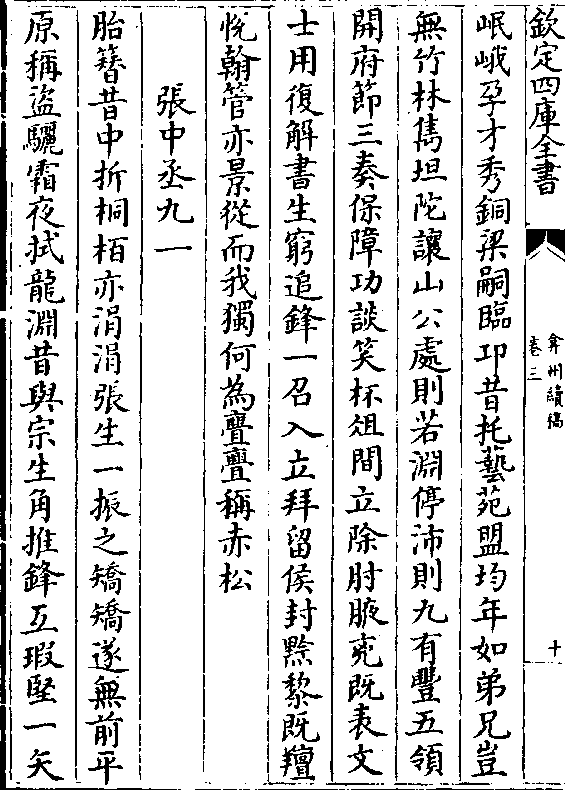 欽定四庫全書
弇州續稿
卷三
十
岷峨孕才秀銅梁嗣臨卭昔托藝苑盟均年如弟兄豈
無竹林雋坦陀讓山公處則若淵停沛則九有豐五領
開府節三奏保障功談笑杯俎間立除肘腋兇既表文
士用復解書生窮追鋒一召入立拜留侯封黔黎既羶
悅翰管亦景從而我獨何為亹亹稱赤松
張中丞九一
胎簮昔中折桐栢亦涓涓張生一振之矯矯遂無前平
原稱盜驪霜夜拭龍淵昔與宗生角推鋒互瑕堅一矢